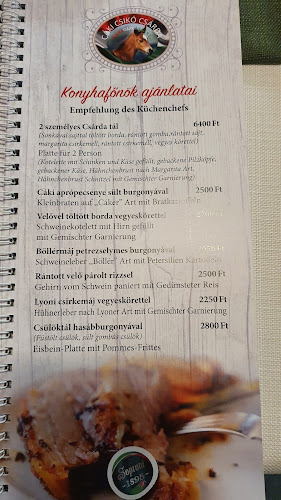 CÁKI CSIKÓ CSÁRDA
Konyhafőnök ajánlatai
Empfehlung des Küchenchefs
2 személyes Csárda tál 6400 Ft
(Sonkával sajttal töltött borda, rántott gomba, rántott sajt,
margaréta csirkemell, rántott csirkemell, vegyes körettel)
Platte für 2 Person
(Kotelette mit Schinken und Käse gefüllt, gebackene Pilzköpfe,
gebackener Käse, Hähnchenbrust nach Margareta Art,
Hähnchenbrust Schnitzel mit Gemischter Garnierung)
Cáki aprópecsenye sült burgonyával 2500 Ft
Kleinbraten auf „Cáker” Art mit Bratkartoffeln
Velővel töltött borda vegyeskörettel
Schweinekotelett mit Hirn gefüllt
mit Gemischter Garnierung
Böllérmáj petrezselymes burgonyával
Schweineleber „Böller” Art mit Petersilien Kartoffeln
Rántott velő párolt rizzsel 2500 Ft
Gehirn vom Schwein paniert mit Gedünsteter Reis
Lyoni csirkemáj vegyeskörettel 2250 Ft
Hühnerleber nach Lyoner Art mit Gemischter Garnierung
Csülöktál hasábburgonyával 2800 Ft
(Füstölt csülök, sült gombás csülök)
Eisbein-Platte mit Pommes-Frittes
Soproni
1895